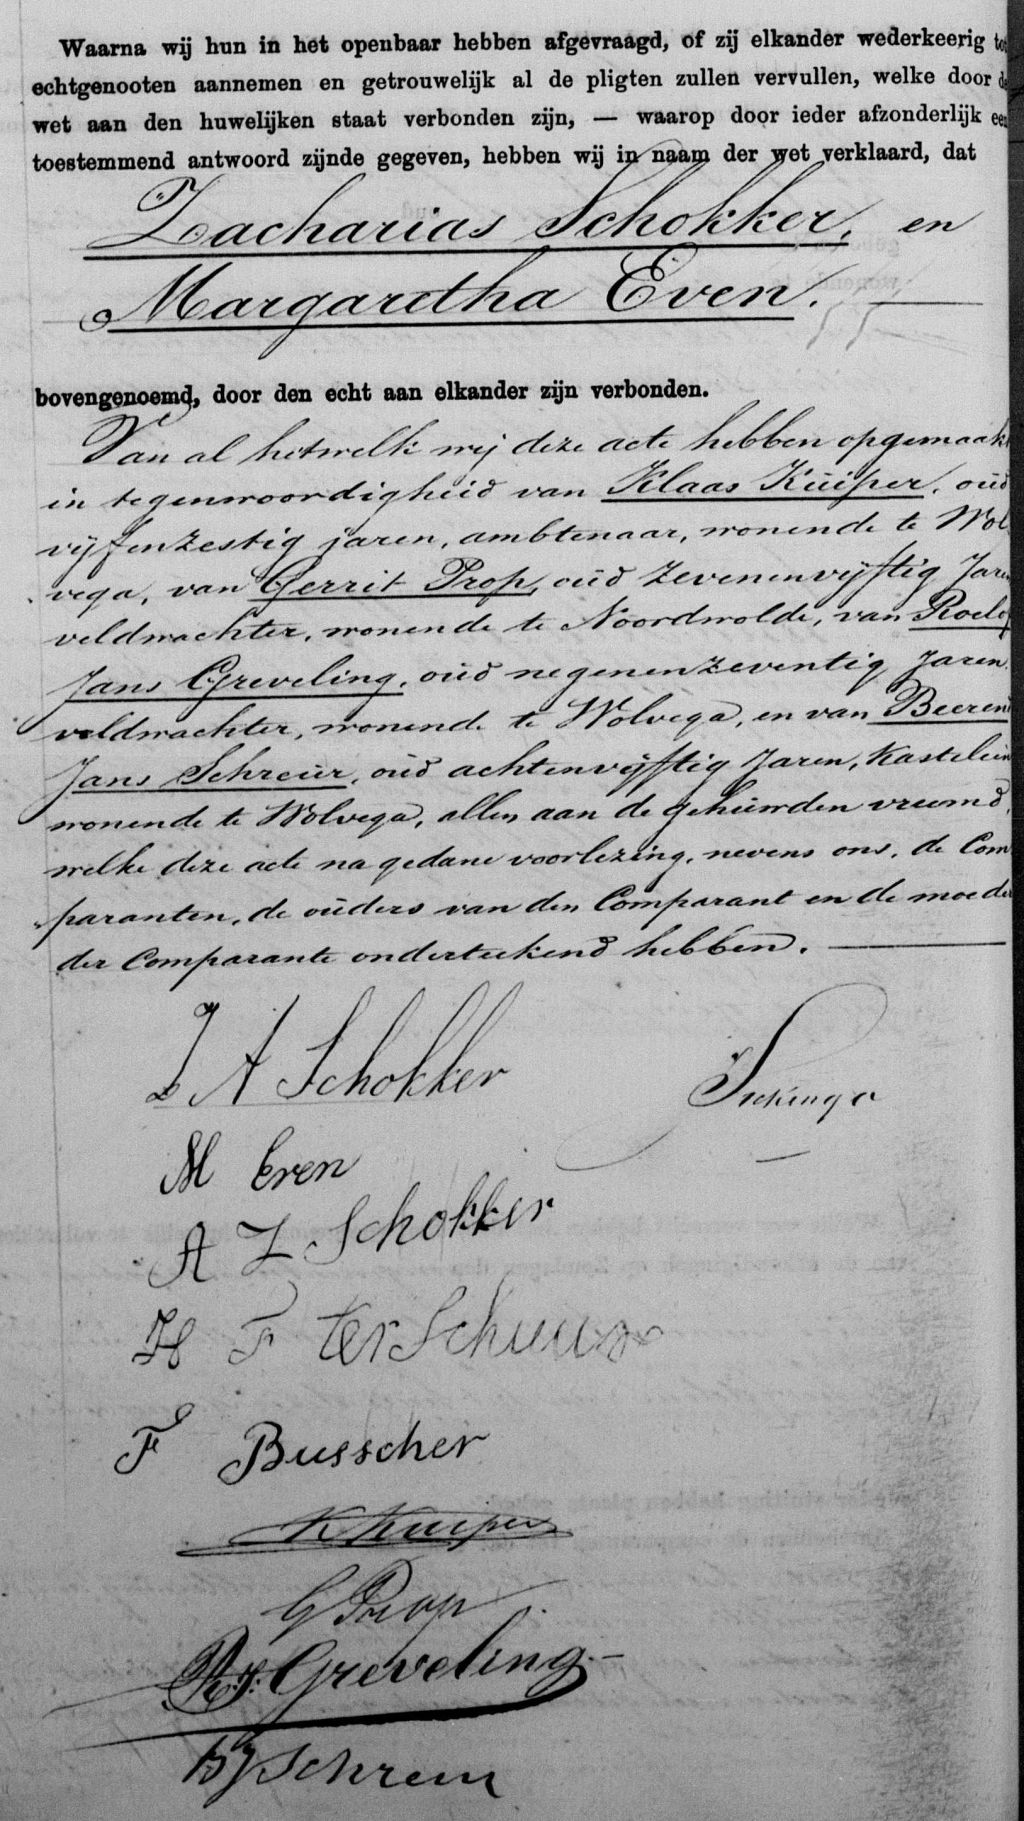 Waarna wij hun in het openbaar hebben afgevraagd, of zij elkander wederkeerig tot
echtgenooten aannemen en getrouwelijk al de pligten zullen vervullen, welke door de
wet aan den huwelijken staat verbonden zijn, — waarop door ieder afzonderlijk een
toestemmend antwoord zijnde gegeven, hebben wij in naam der wet verklaard, dat
Zacharias Schokker, en
Margaretha Even.
bovengenoemd, door den echt aan elkander zijn verbonden.
Van al hetwelk wij deze acte hebben opgemaakt
in tegenwoordigheid van Klaas Kuiper, oud
vijfenzestig jaren, ambtenaar, wonende te Wol
vega, van Gerrit Prop, oud zevenenvijftig Jaren
veldwachter, wonende te Noordwolde, van Roelof
Jans Greveling, oud negenenzeventig Jaren
veldwachter, wonende te Wolvega, en van Beerend
Jans Schreur, oud achtenvijftig Jaren, Kastelein
wonende te Wolvega, allen aan de gehuwden vreemd,
welke deze acte na gedane voorlezing, nevens ons, de Com
paranten, de ouders van den Comparant en de moeder
der Comparante onderteekend hebben.
Z A Schokker
M Even
A Z Schokker
H F ter Schuur
F Busscher
K Kuiper
G Prop
R.J. Greveling
BJ Schreur